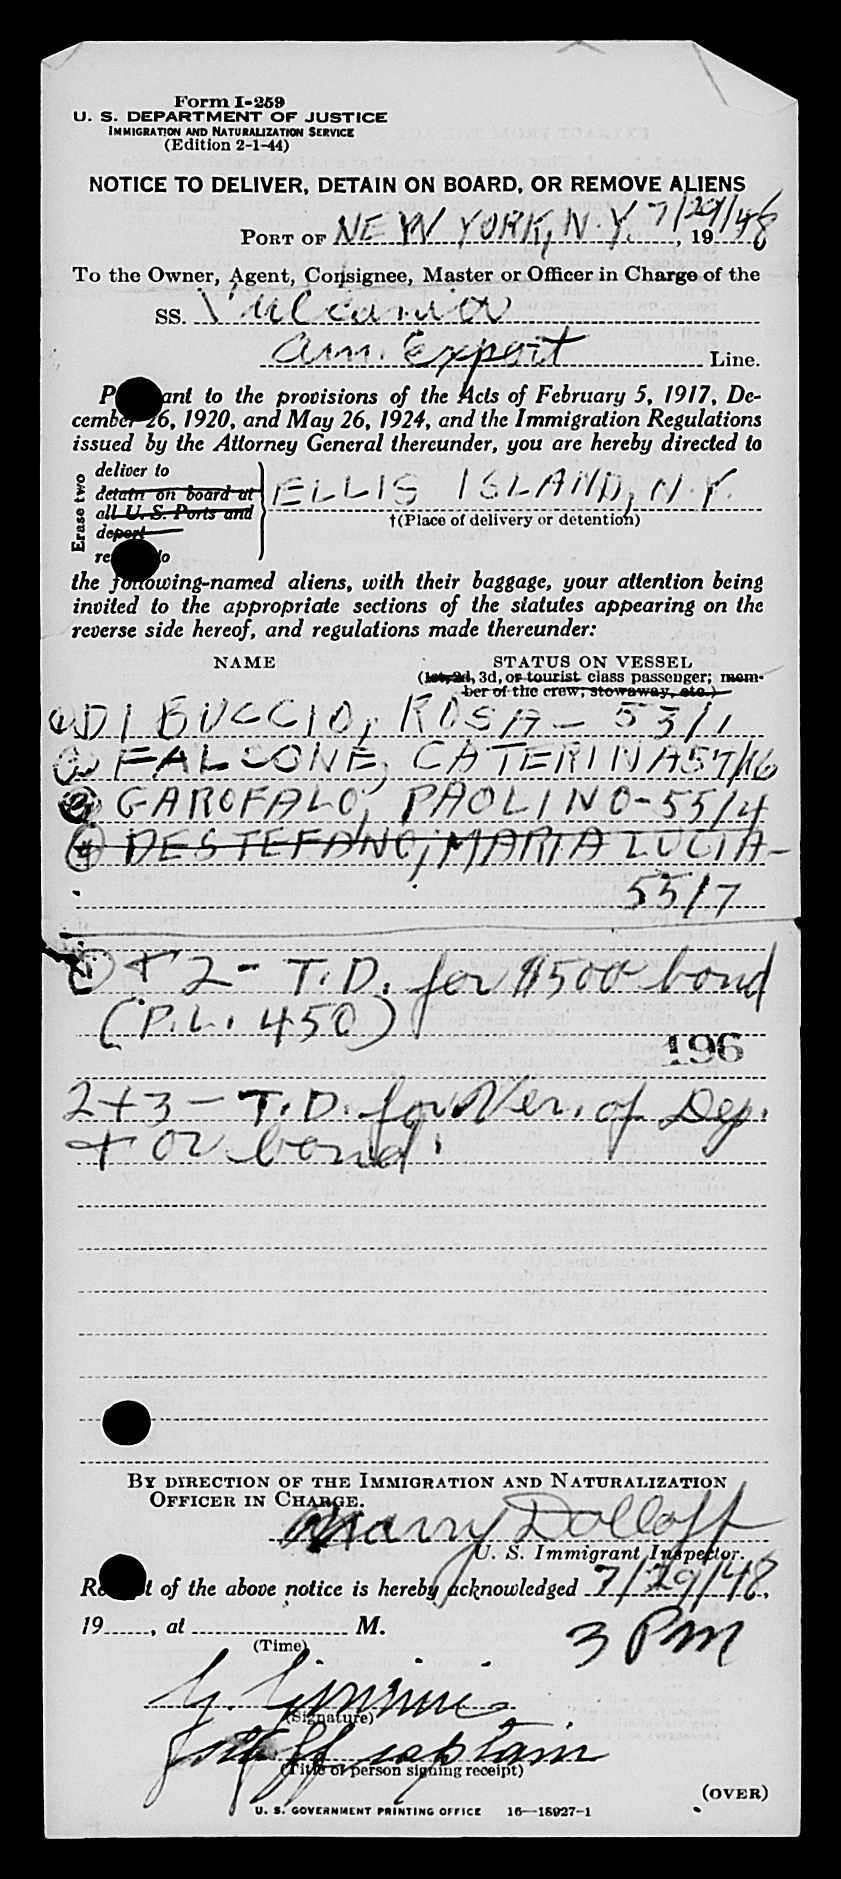 Form I-259
U. S. DEPARTMENT OF JUSTICE
IMMIGRATION AND NATURALIZATION SERVICE
(Edition 2-1-44)
NOTICE TO DELIVER, DETAIN ON BOARD, OR REMOVE ALIENS
PORT OF NEW YORK, N.Y. 7/29/48, 19
To the Owner, Agent, Consignee, Master or Officer in Charge of the
SS. Vulcania
Am. Export Line.
P ant to the provisions of the Acts of February 5, 1917, De-
cember 26, 1920, and May 26, 1924, and the Immigration Regulations
issued by the Attorney General thereunder, you are hereby directed to
Erase two
deliver to
detain on board at
all U. S. Ports and
deport
re to
ELLIS ISLAND, N.Y.
†(Place of delivery or detention)
the following-named aliens, with their baggage, your attention being
invited to the appropriate sections of the statutes appearing on the
reverse side hereof, and regulations made thereunder:
NAME STATUS ON VESSEL
(1st, 2d, 3d, or tourist class passenger; mem-
ber of the crew; stowaway, etc.)
1 DI BUCCIO, ROSA - 53/1
2 FALCONE, CATERINA 57/16
3 GAROFALO, PAOLINO - 55/4
4 DESTEFANO, MARIA LUCIA -
55/7
1 + 2 - T.D. for $500 bond
(P.L. 450)
196
2+3 - T.D. for Ver. of Dep.
+ or bond.
BY DIRECTION OF THE IMMIGRATION AND NATURALIZATION
OFFICER IN CHARGE.
Harry Dolloff
U. S. Immigrant Inspector.
Re t of the above notice is hereby acknowledged 7/29/48,
19......, at .................... M.
3 PM
(Time)
G.
(Signature)
Staff captain
(Title of person signing receipt)
(OVER)
U. S. GOVERNMENT PRINTING OFFICE 16—18927-1